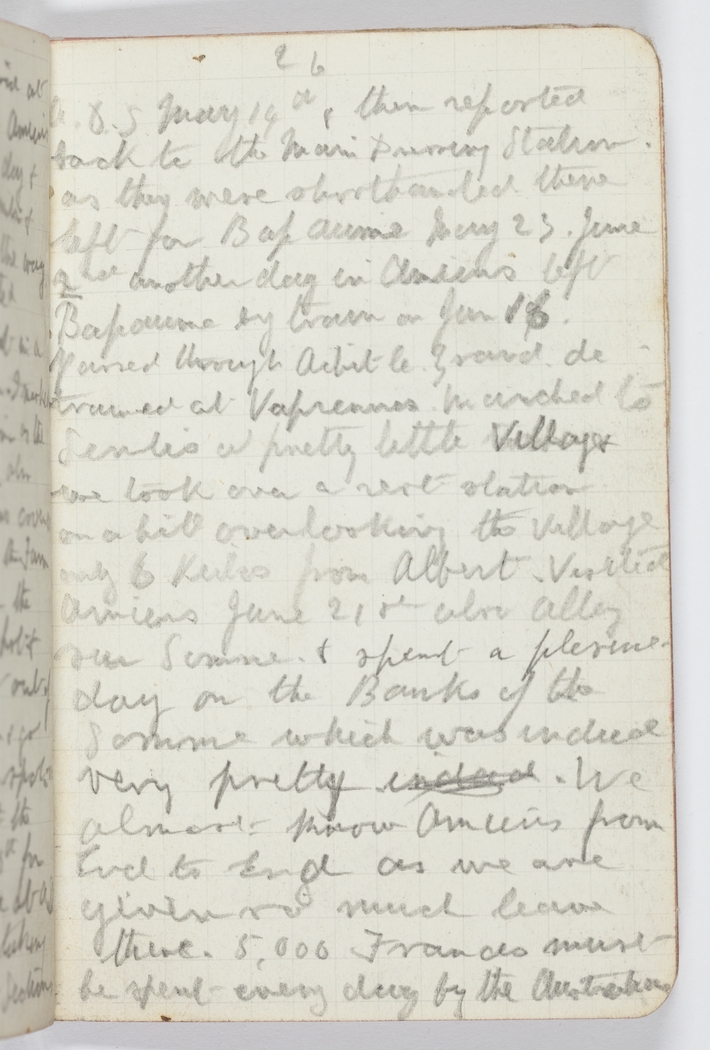 26
A.D.S May 19th, then reported
back to the Main Dressing Station.
as they were shorthanded there
left for Bapaume May 23. June
2nd another day in Amiens left
Bapaume by train on Jun 16.
Passed through Achit le Grand. de
trained at Varennes. Marched to
Senlis a pretty little Village
we took over a rest station
on a hill overlooking the Village
only 6 Kilos from Albert. Visited
Amiens June 21st also Ailly
sur Somme. & spent a plesure
day on the Banks of the
Somme which was indeed
very pretty indeed. We
almost know Amiens from
End to End as we are
given so much leave
there. 5,000 Francs must
be spent every day by the Australians